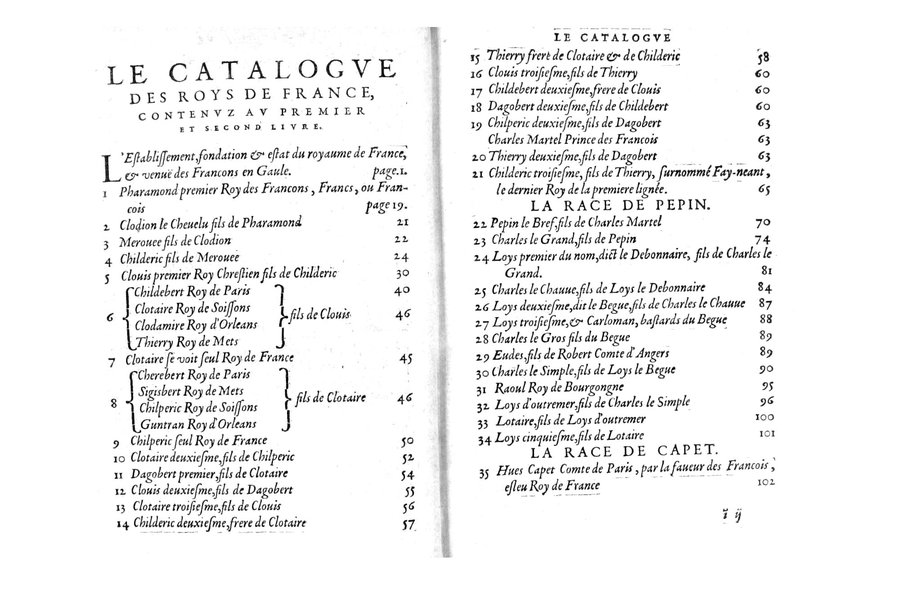 LE CATALOGVE
DES ROYS DE FRANCE,
CONTENVZ AV PREMIER
ET SECOND LIVRE.
L'Eſtabliſſement, fondation & eſtat du royaume de France,
& venuë des Francons en Gaule. page.1.
1 Pharamond premier Roy des Francons, Francs, ou Fran-
cois page 19.
2 Clodion le Cheuelu fils de Pharamond 21
3 Merouee fils de Clodion 22
4 Childeric fils de Merouee 24
5 Clouis premier Roy Chreſtien fils de Childeric 30
Childebert Roy de Paris 40
Clotaire Roy de Soiſſons
6 fils de Clouis 46
Clodamire Roy d'Orleans
Thierry Roy de Mets
7 Clotaire ſe voit ſeul Roy de France 45
Cherebert Roy de Paris
Sigisbert Roy de Mets
8 fils de Clotaire 46
Chilperic Roy de Soiſſons
Guntran Roy d'Orleans
9 Chilperic ſeul Roy de France 50
10 Clotaire deuxieſme, fils de Chilperic 52
11 Dagobert premier, fils de Clotaire 54
12 Clouis deuxieſme, fils de Dagobert 55
13 Clotaire troiſieſme, fils de Clouis 56
14 Childeric deuxieſme, frere de Clotaire 57
LE CATALOGVE
15 Thierry frere de Clotaire & de Childeric 58
16 Clouis troiſieſme, fils de Thierry 60
17 Childebert deuxieſme, frere de Clouis 60
18 Dagobert deuxieſme, fils de Childebert 60
19 Chilperic deuxieſme, fils de Dagobert 63
Charles Martel Prince des Francois 63
20 Thierry deuxieſme, fils de Dagobert 63
21 Childeric troiſieſme, fils de Thierry, ſurnommé Fay-neant,
le dernier Roy de la premiere lignée. 65
LA RACE DE PEPIN.
22 Pepin le Bref, fils de Charles Martel 70
23 Charles le Grand, fils de Pepin 74
24 Loys premier du nom, dict le Debonnaire, fils de Charles le
Grand. 81
25 Charles le Chauue, fils de Loys le Debonnaire 84
26 Loys deuxieſme, dit le Begue, fils de Charles le Chauue 87
27 Loys troiſieſme, & Carloman, baſtards du Begue 88
28 Charles le Gros fils du Begue 89
29 Eudes, fils de Robert Comte d'Angers 89
30 Charles le Simple, fils de Loys le Begue 90
31 Raoul Roy de Bourgongne 95
32 Loys d'outremer, fils de Charles le Simple 96
33 Lotaire, fils de Loys d'outremer 100
34 Loys cinquieſme, fils de Lotaire 101
LA RACE DE CAPET.
35 Hues Capet Comte de Paris, par la faueur des Francois,
eſleu Roy de France 102
ĩ ij